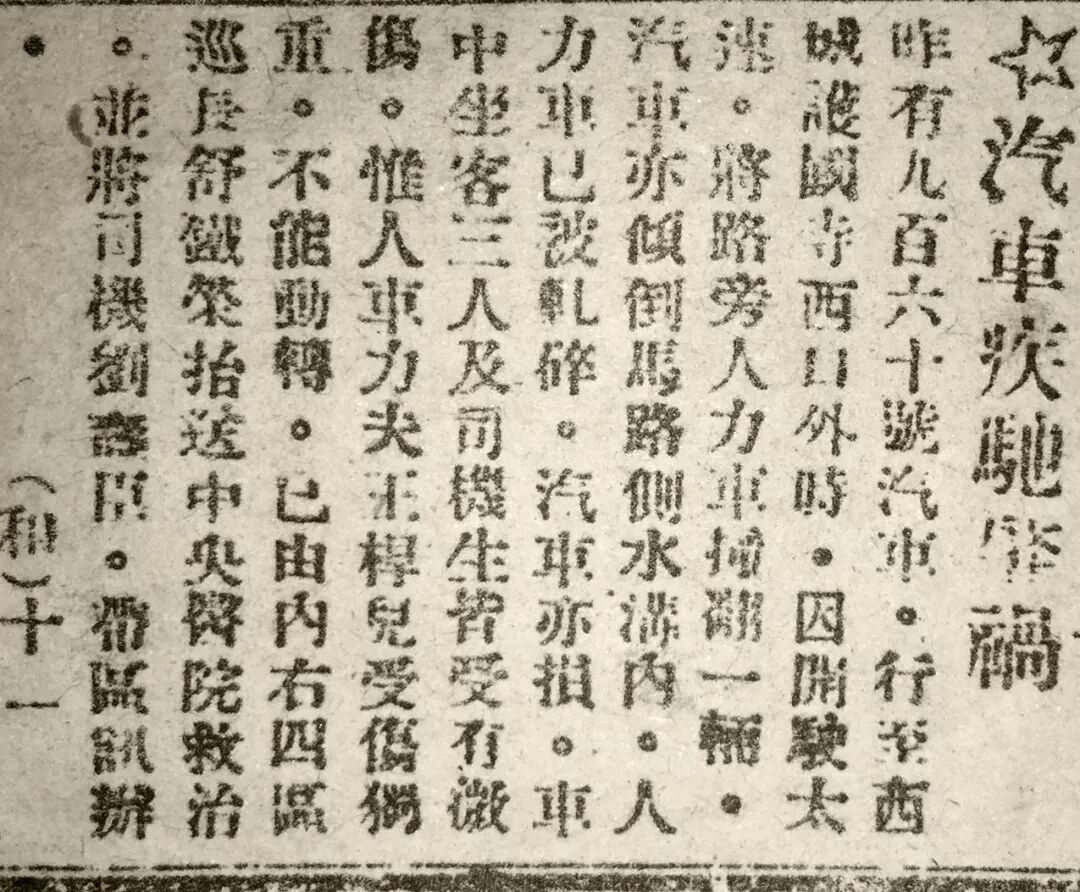 ☆汽車疾馳肇禍
昨有九百六十號汽車。行至西
城護國寺西口外時。因開駛太
速。將路旁人力車撞翻一輛。
汽車亦傾倒馬路側水溝內。人
力車已被軋碎。汽車亦損。車
中坐客三人及司機生皆受有微
傷。惟人車力夫王桿兒受傷獨
重。不能動轉。已由內右四區
巡長舒鐵榮抬送中央醫院救治
。並將司機劉臣。帶區訊辦
。(和)十一